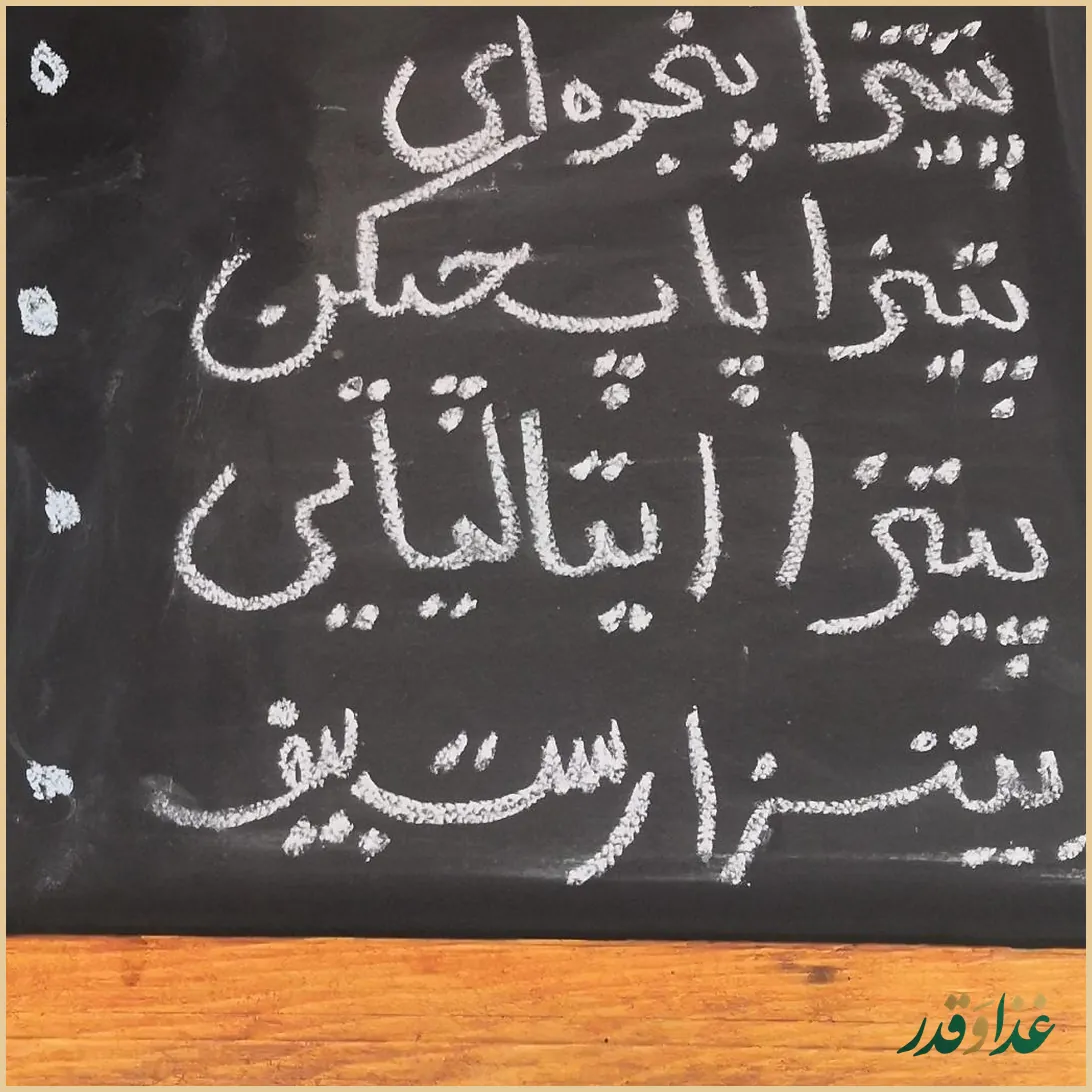 پیتزا پنجره ای
پیتزا پاپ چیکن
پیتزا ایتالیایی
پیتزا رست بیف
غذا و قدر